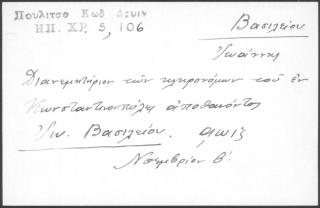 Πουλιτσα Κωδ
ΗΠ. ΧΡ 5, 106
Βασιλείου
Ἰωάννης
Διανεμητήριον τῶν κληρονόμων τοῦ ἐν
Κωνσταντινουπόλει ἀποθανόντος
Ἰω. Βασιλείου. αωιξ
Νοεμβρίου 8'.